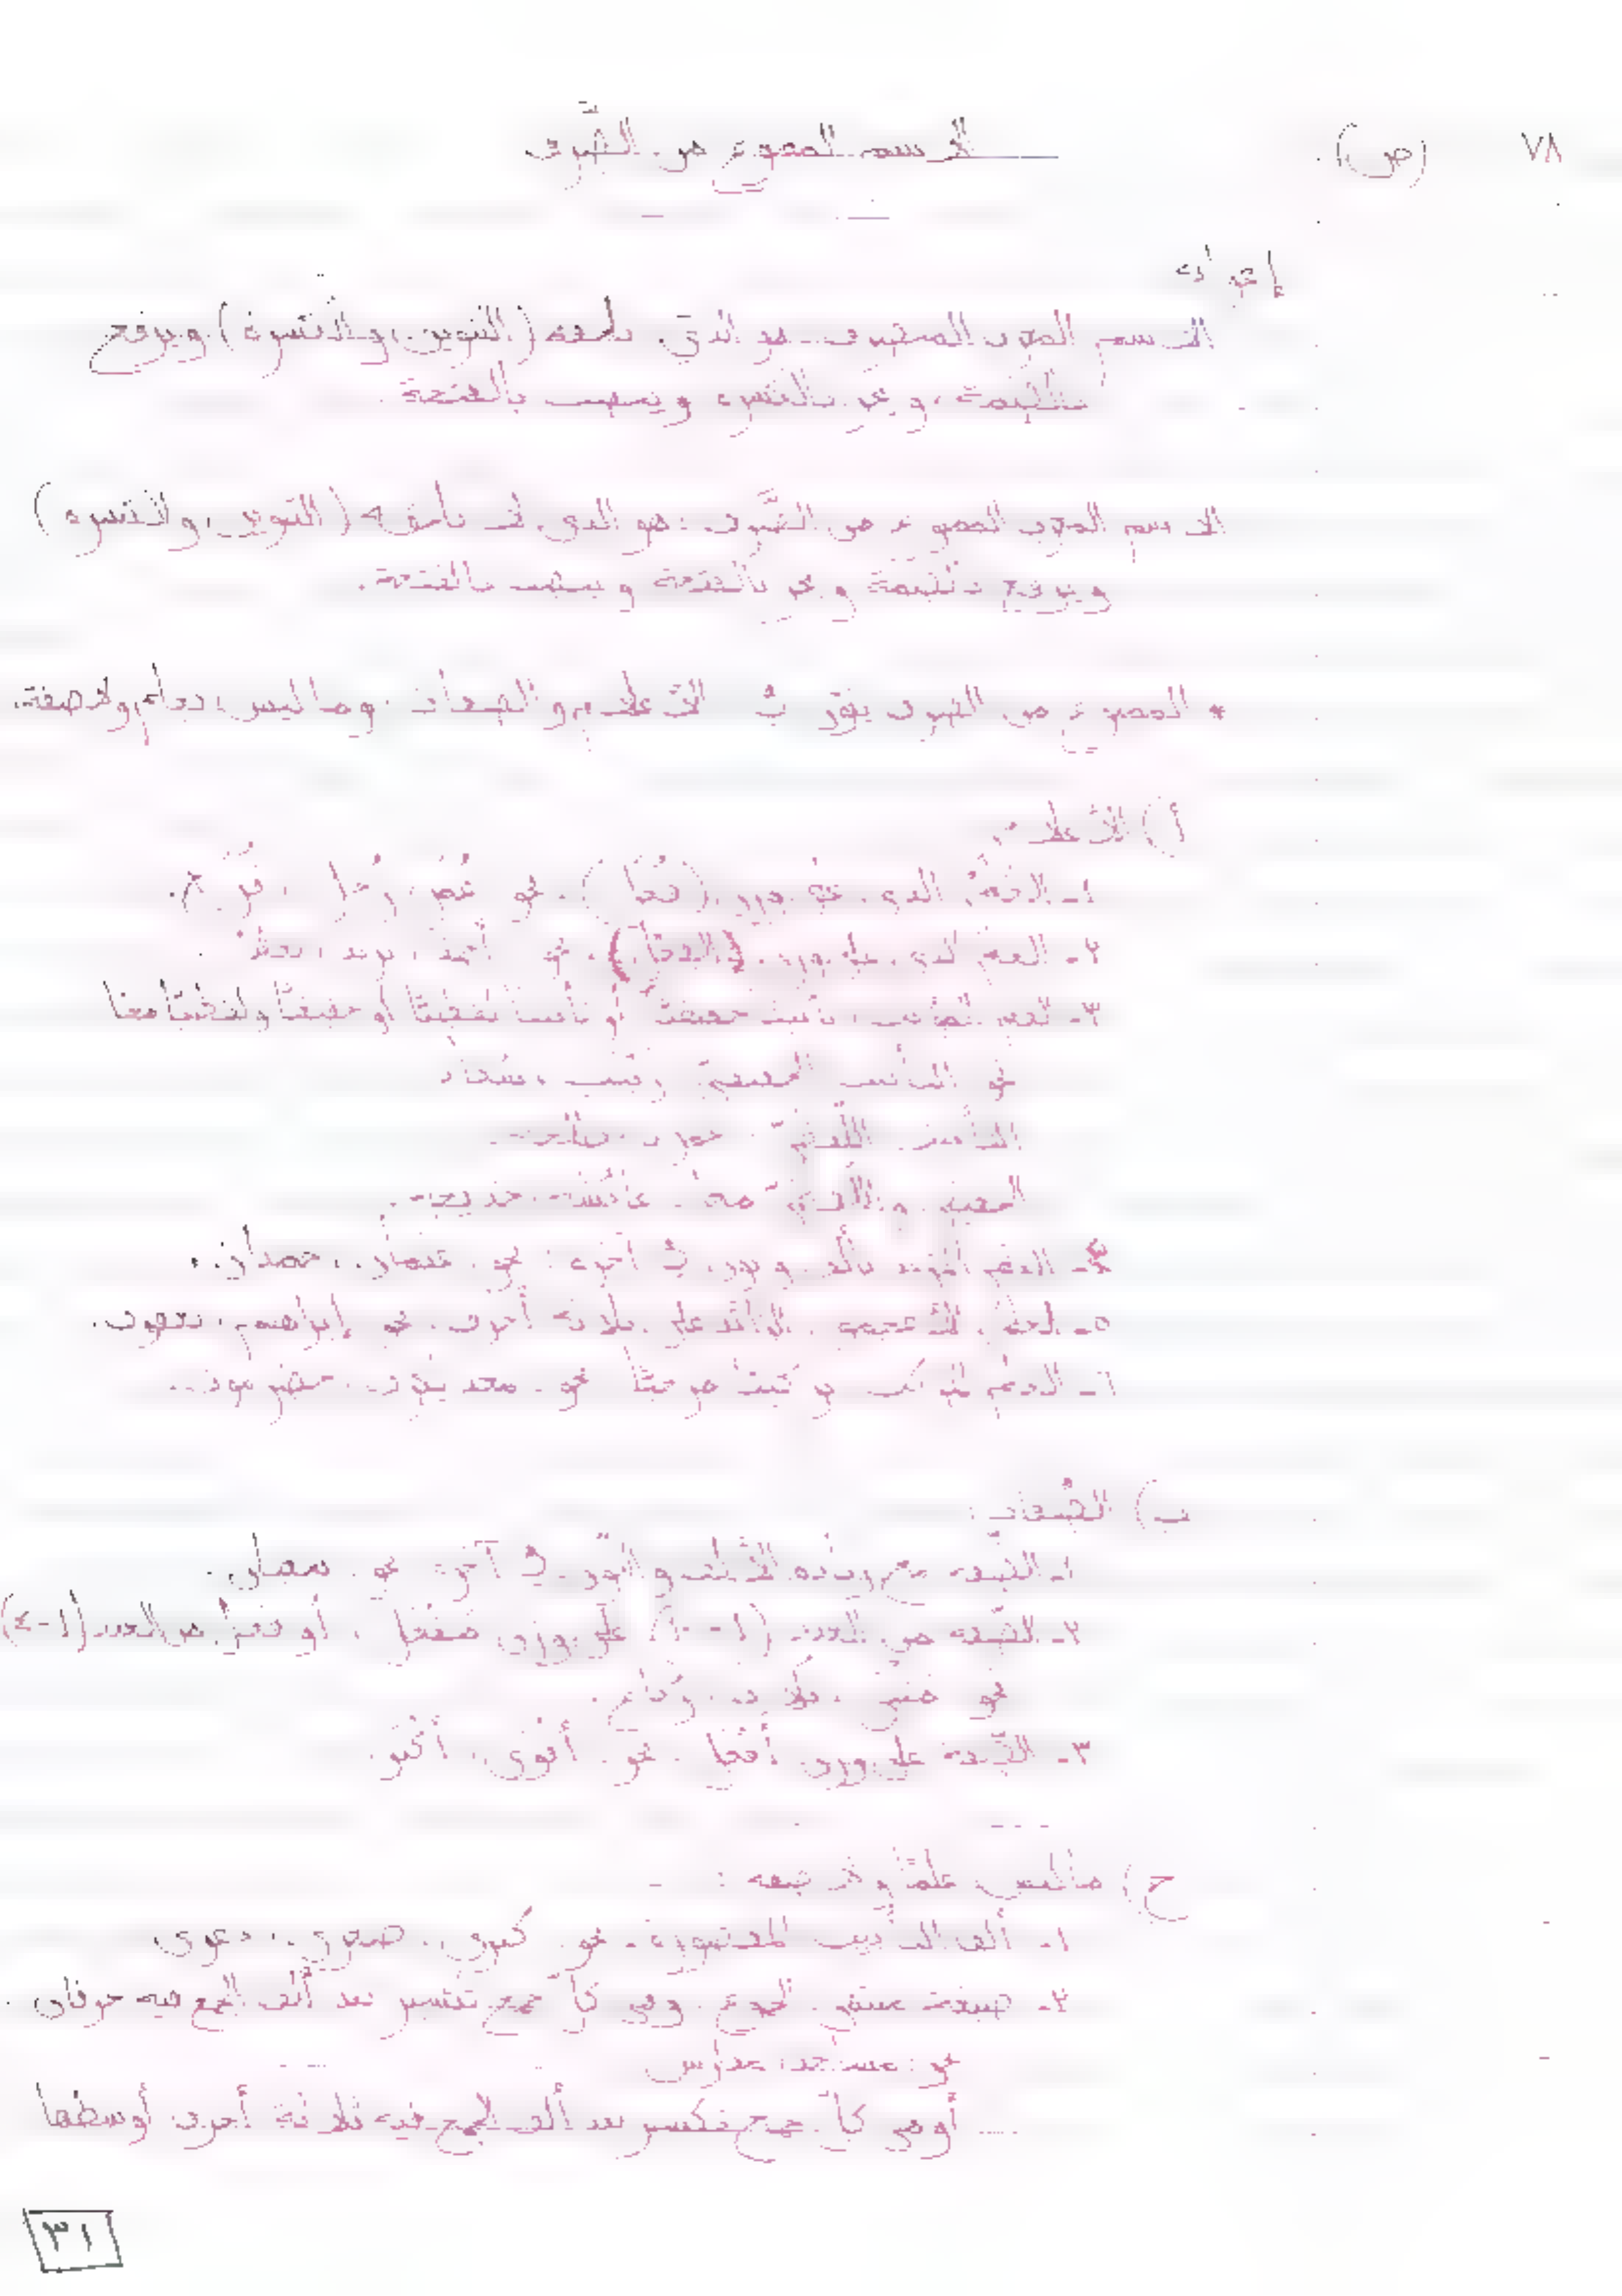 ٧٨ (ص) الاسم الممنوع من الصَّرف
الاسم المعرب المنصرف هو الذي تلحقه (التنوين، والكسرة) ويرفع
بالضمة، ويجر بالكسرة وينصب بالفتحة.
الاسم المعرب الممنوع من الصَّرف: هو الذي لا تلحقه (التنوين، والكسرة)
ويرفع بالضمة ويجر بالفتحة وينصب بالفتحة.
* الممنوع من الصرف يقع في الأعلام والصفات وما ليس بعلم ولا صفة.
أ) الأعلام
١- العلم الذي على وزن (فُعَل). نحو عُمَر، زُحل، قُزح.
٢- العلم الذي على وزن (الفعل). نحو أحمد، يزيد،
٣- العلم المؤنث تأنيث حقيقيًّا أو تأنيثا لفظيًّا أو حقيقيًّا ولفظيًّا معا
نحو التأنيث الحقيقي زينب، سعاد
التأنيث اللّفظيّ حمزة، طلحة.
الحقيقي واللّفظيّ معا. عائشة، خديجة.
٤- العلم المزيد بألف ونون في آخره: نحو عثمان، حمدان.
٥- العلم الأعجمي الزائد على ثلاثة أحرف. نحو إبراهيم، يعقوب.
٦- العلم المركب تركيبًا مزجيًّا نحو. معد يكرب، حضرموت.
ب) الصِّفات:
١- الصِّفة مع زيادة الألف والنّون في آخره نحو.
٢- الصِّفة من العدد (١-١٠) على وزن مَفْعَل، أو فُعَال من العدد (١-٤)
نحو مثنى، ثلاث، رُباع.
٣- الصِّفة على وزن أفعل. نحو. أقوى، أكبر.
ج) ما ليس علمًا ولا صفة:
١- ألف التأنيث المقصورة. نحو كبرى، صغرى، دعوى
٢- صيغة منتهى الجموع. وهي كلّ جمع تكسير بعد ألف الجمع فيه حرفان.
نحو: مساجد، مدارس
أو هي كلّ جمع تكسير بعد ألف الجمع فيه ثلاثة أحرف أوسطها
٣١